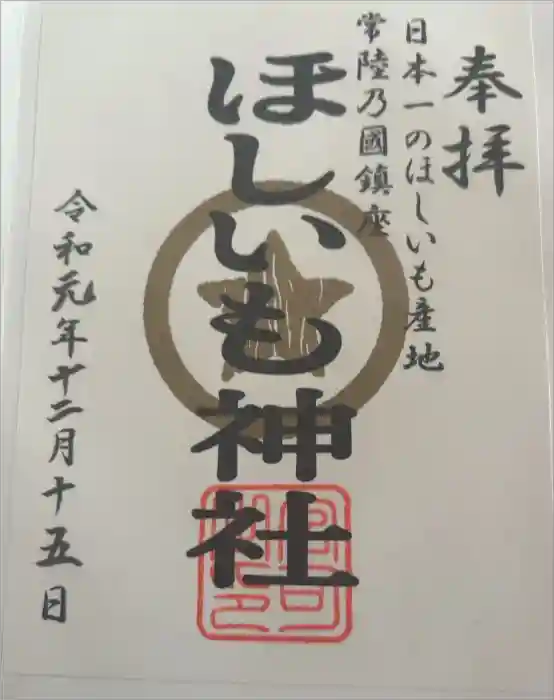 奉拝
日本一のほしいも産地
常陸乃國鎮座
ほしいも神社
令和元年十二月十五日